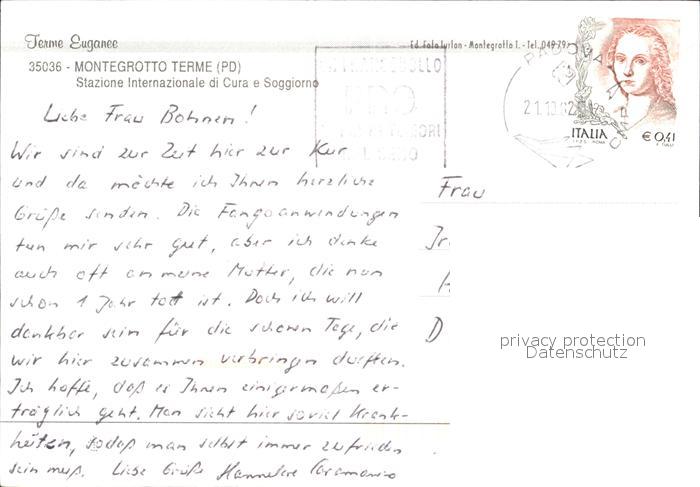 Terme Euganee
35036 - MONTEGROTTO TERME (PD)
Stazione Internazionale di Cura e Soggiorno
Ed. Foto Turlon - Montegrotto T. - Tel. 049 79
PADOVA
21.10.02
ITALIA
€ 0,41
Liebe Frau Bohnen!
Wir sind zur Zeit hier zur Kur
und da möchte ich Ihnen herzliche
Grüße senden. Die Fangoanwendungen
tun mir sehr gut, aber ich denke
auch oft an meine Mutter, die nun
schon 1 Jahr tot ist. Doch ich will
dankbar sein für die schönen Tage, die
wir hier zusammen verbringen durften.
Ich hoffe, daß es Ihnen einigermaßen er-
träglich geht. Man sieht hier soviel Krank-
heiten, sodaß man selbst immer zufrieden
sein muß. Liebe Grüße Hannelore
Frau
D
privacy protection
Datenschutz